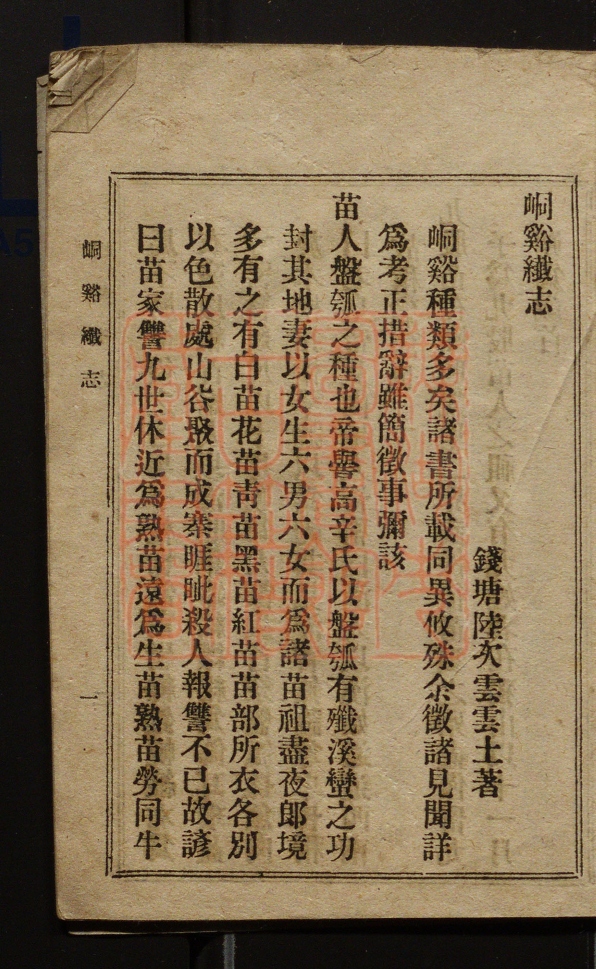 峒谿纖志
錢塘陸次雲雲士著
峒谿種類多矣諸書所載同異攸殊余徵諸見聞詳
爲考正措辭雖簡徵事彌該
苗人盤瓠之種也帝嚳高辛氏以盤瓠有殲溪蠻之功
封其地妻以女生六男六女而爲諸苗祖盡夜郞境
多有之有白苗花苗靑苗黑苗紅苗苗部所衣各別
以色散處山谷聚而成寨睚眦殺人報讐不已故諺
曰苗家讐九世休近爲熟苗遠爲生苗熟苗勞同牛
峒谿纖志
一